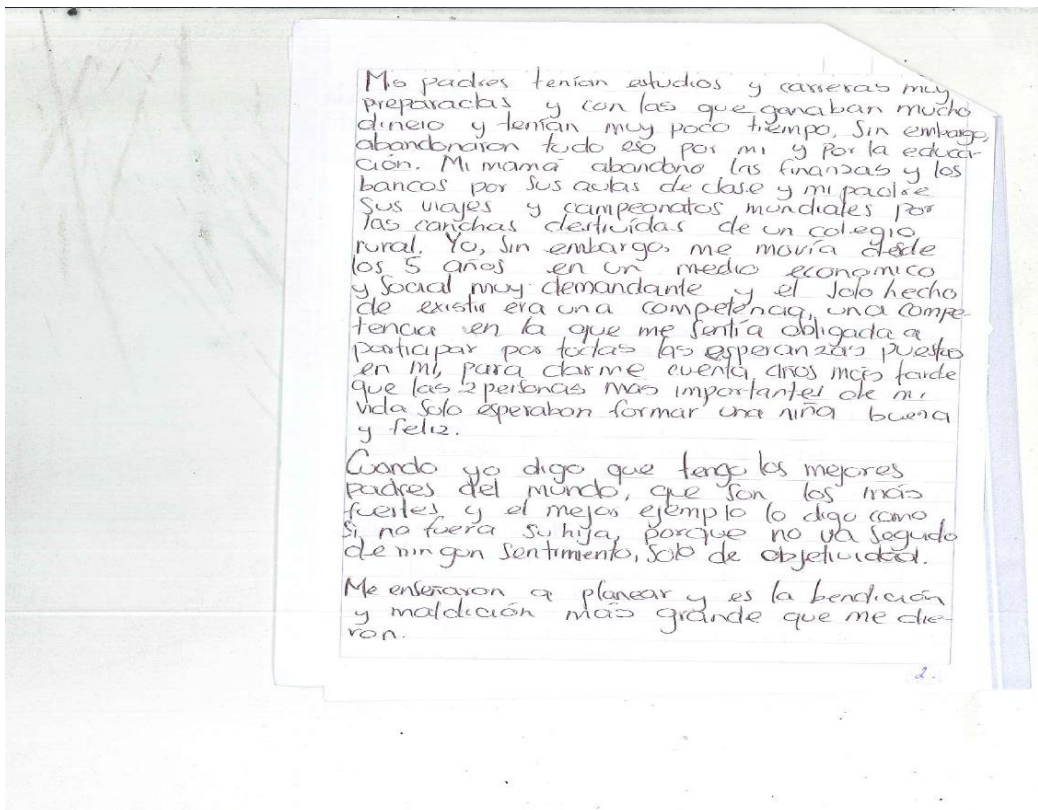 Mis padres tenían estudios y carreras muy
preparadas y con las que ganaban mucho
dinero y tenían muy poco tiempo, Sin embargo,
abandonaron todo eso por mi y por la educa-
ción. Mi mamá abandono las finanzas y los
bancos por sus aulas de clase y mi padre
sus viajes y campeonatos mundiales por
las canchas destruídas de un colegio
rural. Yo, sin embargo, me movía desde
los 5 años en un medio economico
y social muy demandante y el solo hecho
de existir era una competencia, una compe-
tencia en la que me sentía obligada a
participar por todas las esperanzas puestas
en mi, para darme cuenta años más tarde
que las 2 personas mas importantes de mi
vida solo esperaban formar una niña buena
y feliz.
Cuando yo digo que tengo los mejores
padres del mundo, que son los más
fuertes y el mejor ejemplo lo digo como
si no fuera su hija, porque no va seguido
de ningun sentimiento, solo de objetividad.
Me enseñaron a planear y es la bendición
y maldición más grande que me die-
ron.
2.